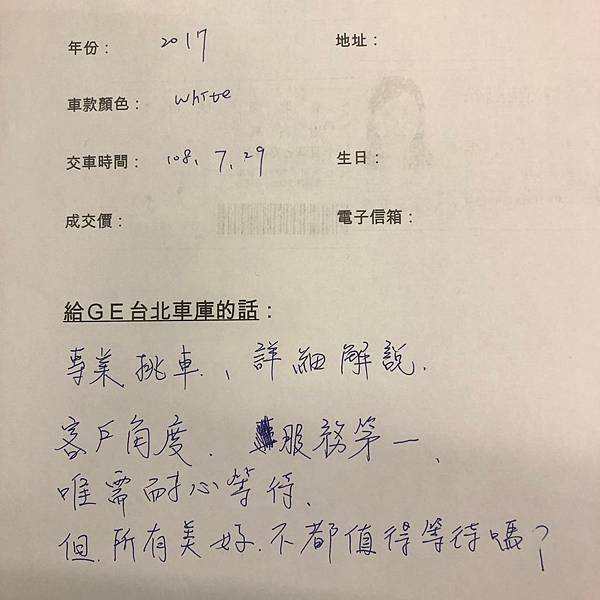 年份： 2017 地址：
車款顏色： white
交車時間： 108. 7. 29 生日：
成交價： 電子信箱：
給GE台北車庫的話：
專業挑車、詳細解說.
客戶角度. 服務第一、
唯需耐心等待.
但.所有美好.不都值得等待嗎？